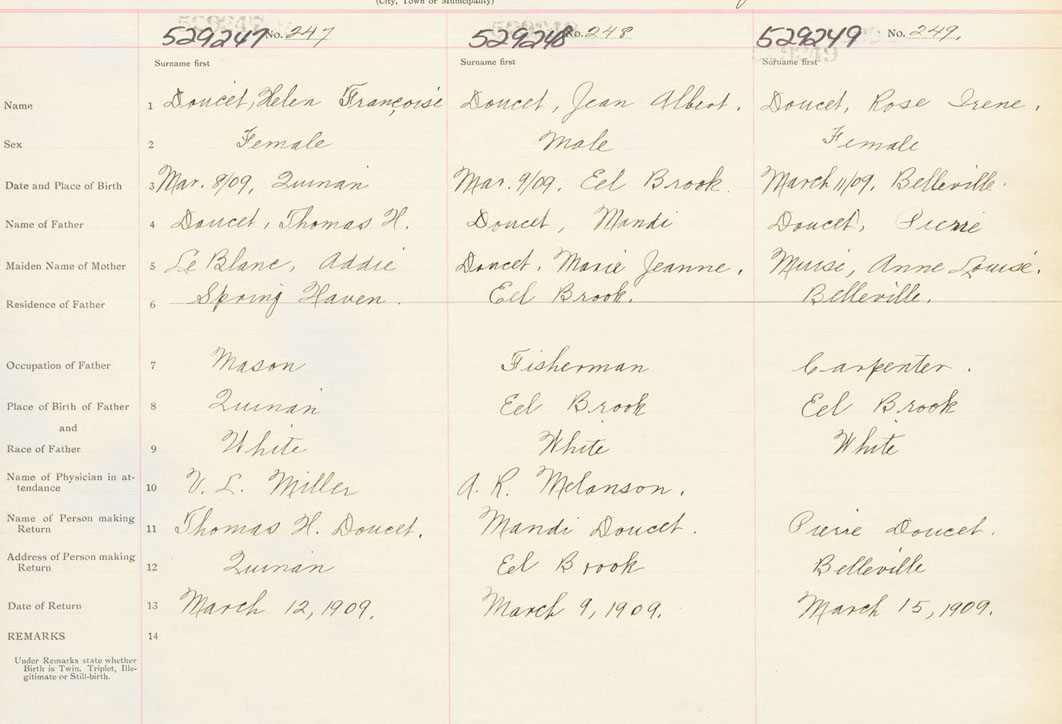 (City, Town or Municipality)
529247 No. 247 529248 No. 248 529249 No. 249.
Surname first Surname first Surname first
Name 1 Doucet, Helen Françoise Doucet, Jean Albert. Doucet, Rose Irene.
Sex 2 Female Male Female
Date and Place of Birth 3 Mar. 8/09, Quinan Mar. 9/09. Eel Brook. March 11/09. Belleville.
Name of Father 4 Doucet, Thomas H. Doucet, Mandi Doucet, Pierre
Maiden Name of Mother 5 Le Blanc, Addie Doucet. Marie Jeanne. Muise, Anne Louise.
Residence of Father 6 Spring Haven. Eel Brook. Belleville.
Occupation of Father 7 Mason Fisherman Carpenter.
Place of Birth of Father 8 Quinan Eel Brook Eel Brook
and
Race of Father 9 White White White
Name of Physician in at-
tendance 10 V. L. Miller A. R. Melanson.
Name of Person making
Return 11 Thomas H. Doucet. Mandi Doucet. Pierre Doucet.
Address of Person making
Return 12 Quinan Eel Brook Belleville
Date of Return 13 March 12, 1909. March 9, 1909. March 15, 1909.
REMARKS 14
Under Remarks state whether
Birth is Twin, Triplet, Ille-
gitimate or Still-birth.